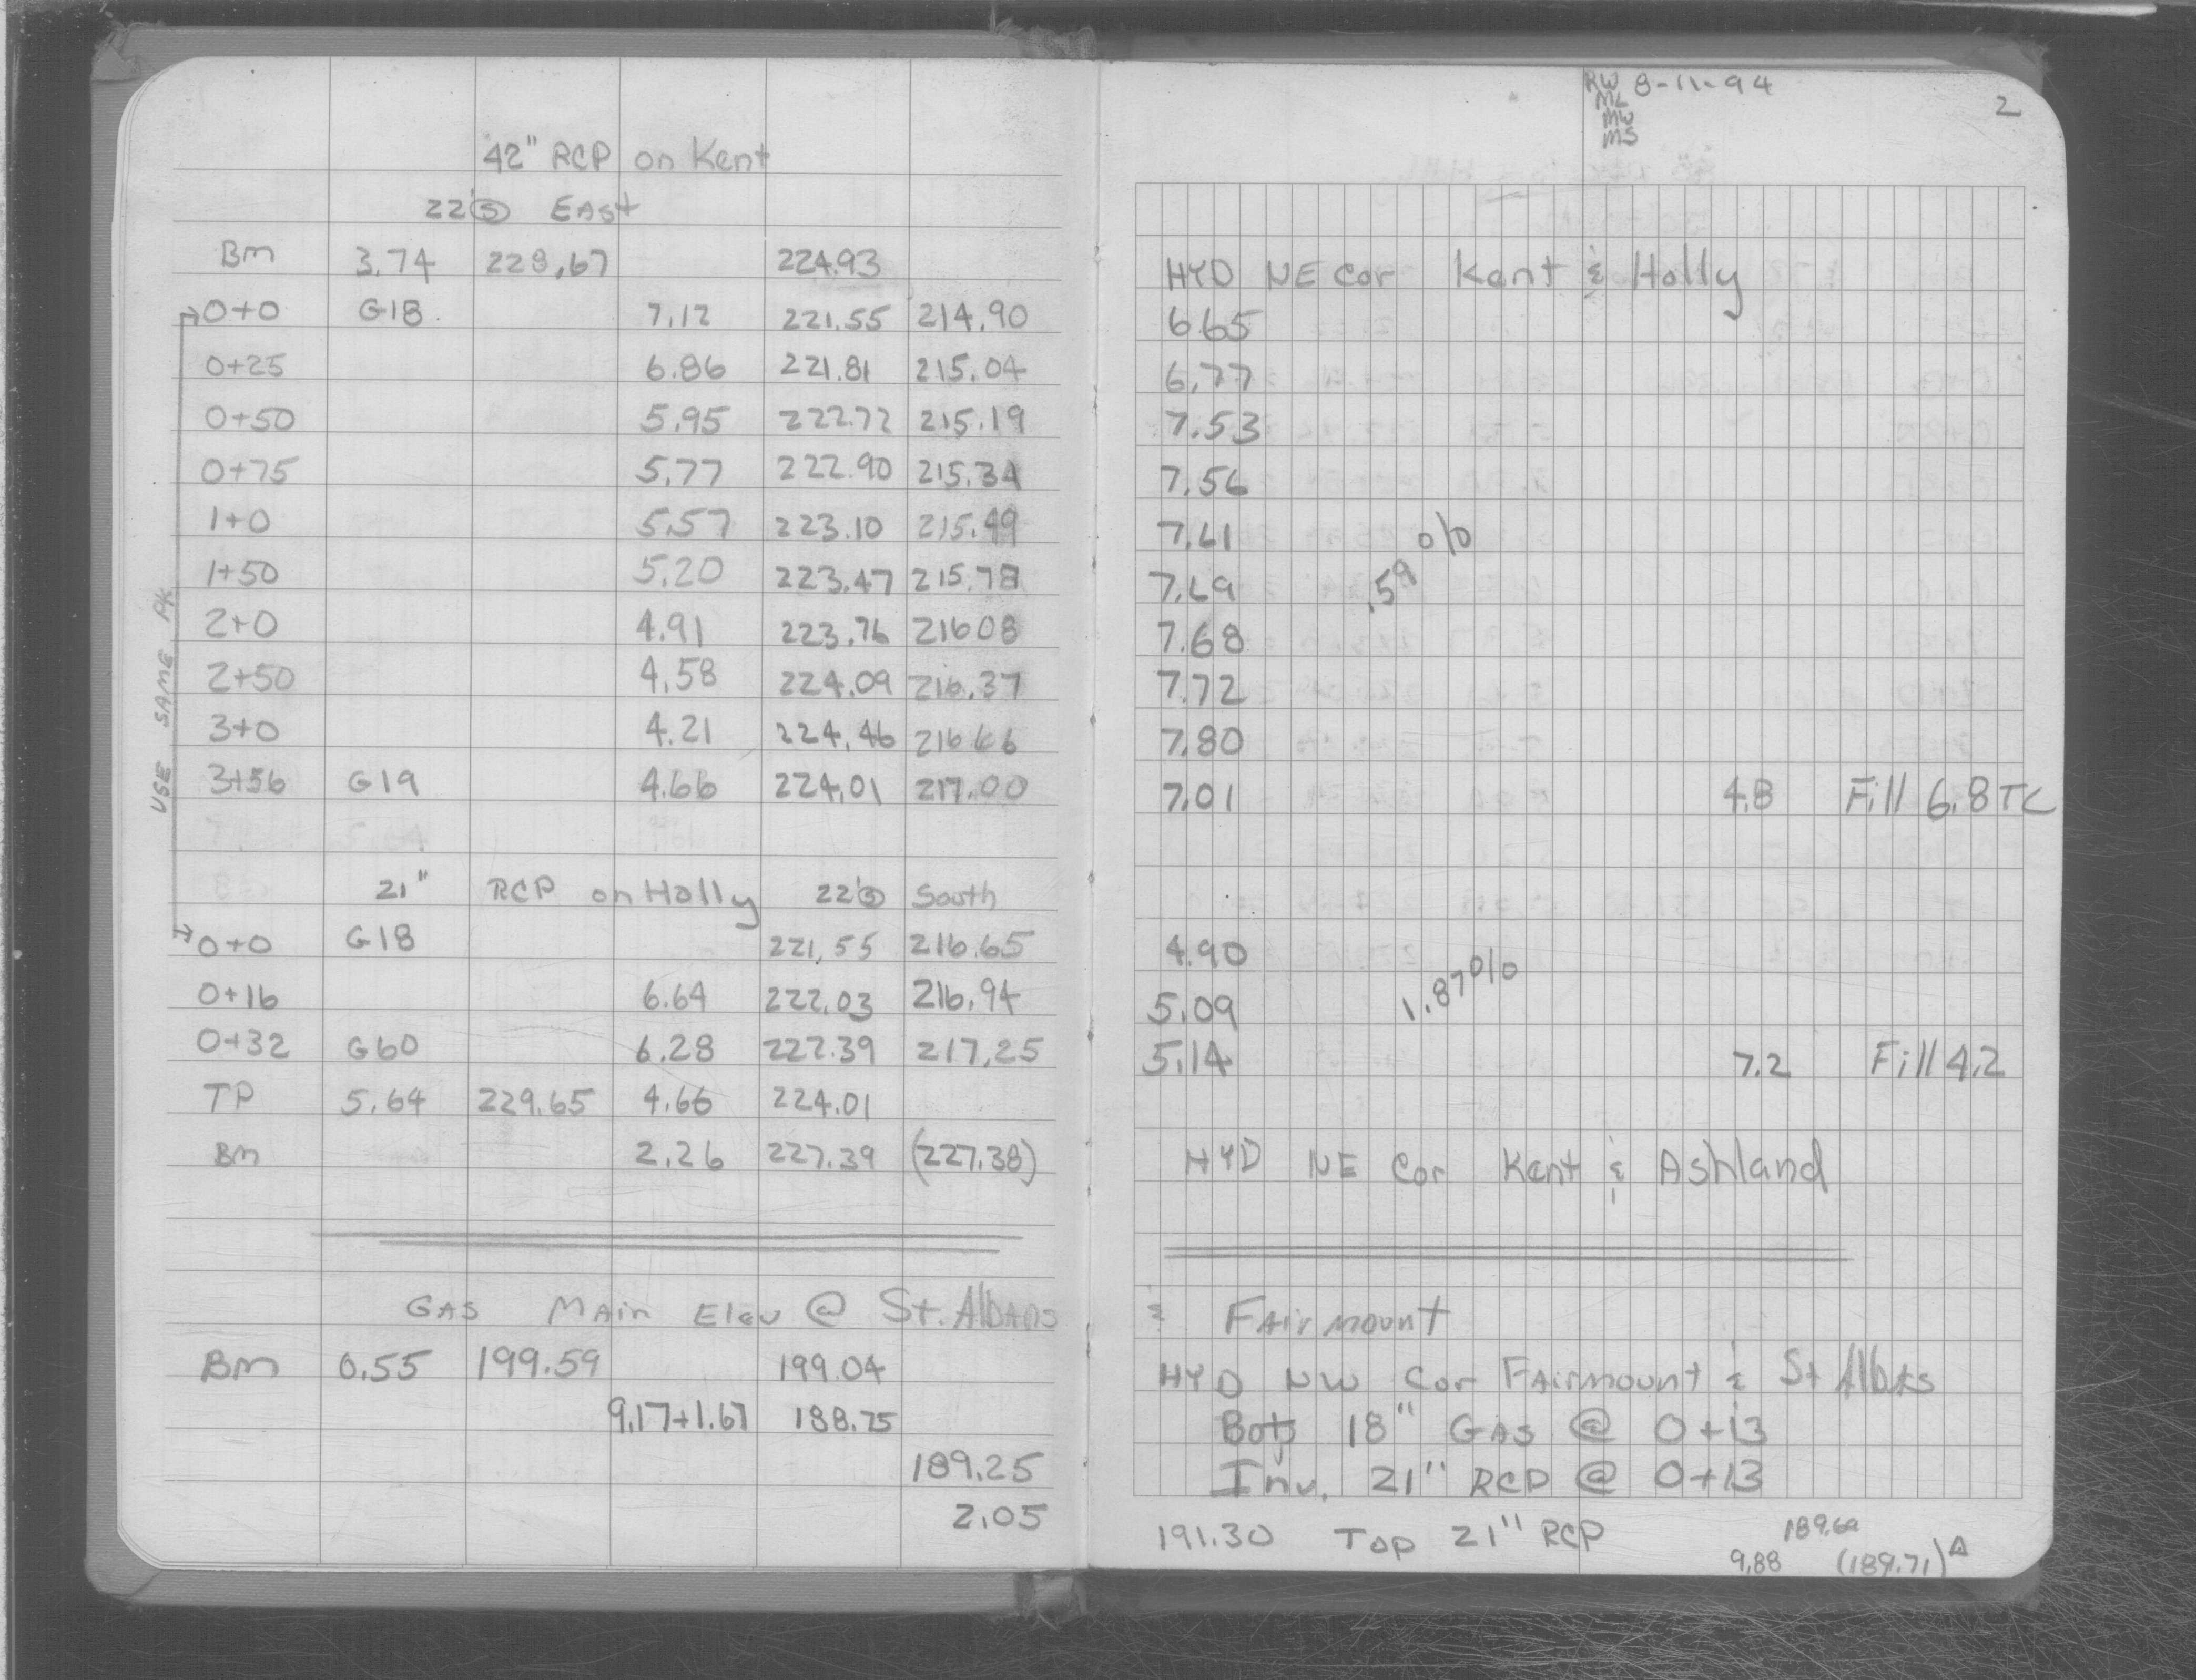 42" RCP on Kent
22 ⑤ EAST
Bm 3.74 228.67 224.93
0+0 G18 7.12 221.55 214.90
0+25 6.86 221.81 215.04
0+50 5.95 222.72 215.19
0+75 5.77 222.90 215.34
1+0 5.57 223.10 215.49
1+50 5.20 223.47 215.78
2+0 4.91 223.76 21608
2+50 4.58 224.09 216.37
3+0 4.21 224.46 21666
3+56 G19 4.66 224.01 217.00
USE SAME PK
21" RCP on Holly 22 ③ South
0+0 G18 221.55 216.65
0+16 6.64 222.03 216.94
0+32 G60 6.28 222.39 217.25
TP 5.64 229.65 4.66 224.01
Bm 2.26 227.39 (227.38)
GAS MAin Elev @ St. AlbAns
Bm 0.55 199.59 199.04
9.17+1.67 188.75
189.25
2.05
RW 8-11-94
ML
MW
MS
2
HYD NE Cor Kent & Holly
665
6.77
7.53
7.56
7.61
.59 %
7.69
7.68
7.72
7.80
7.01 4.8 Fill 6.8 TC
4.90
1.87%
5.09
5.14 7.2 Fill 4.2
HYD NE Cor Kent & Ashland
& FAirmount
HYD NW Cor FAirmount & St Albns
Bot 18" GAS @ 0+13
Inv. 21" RCP @ 0+13
191.30 Top 21" RCP
189.69
9.88 (189.71)